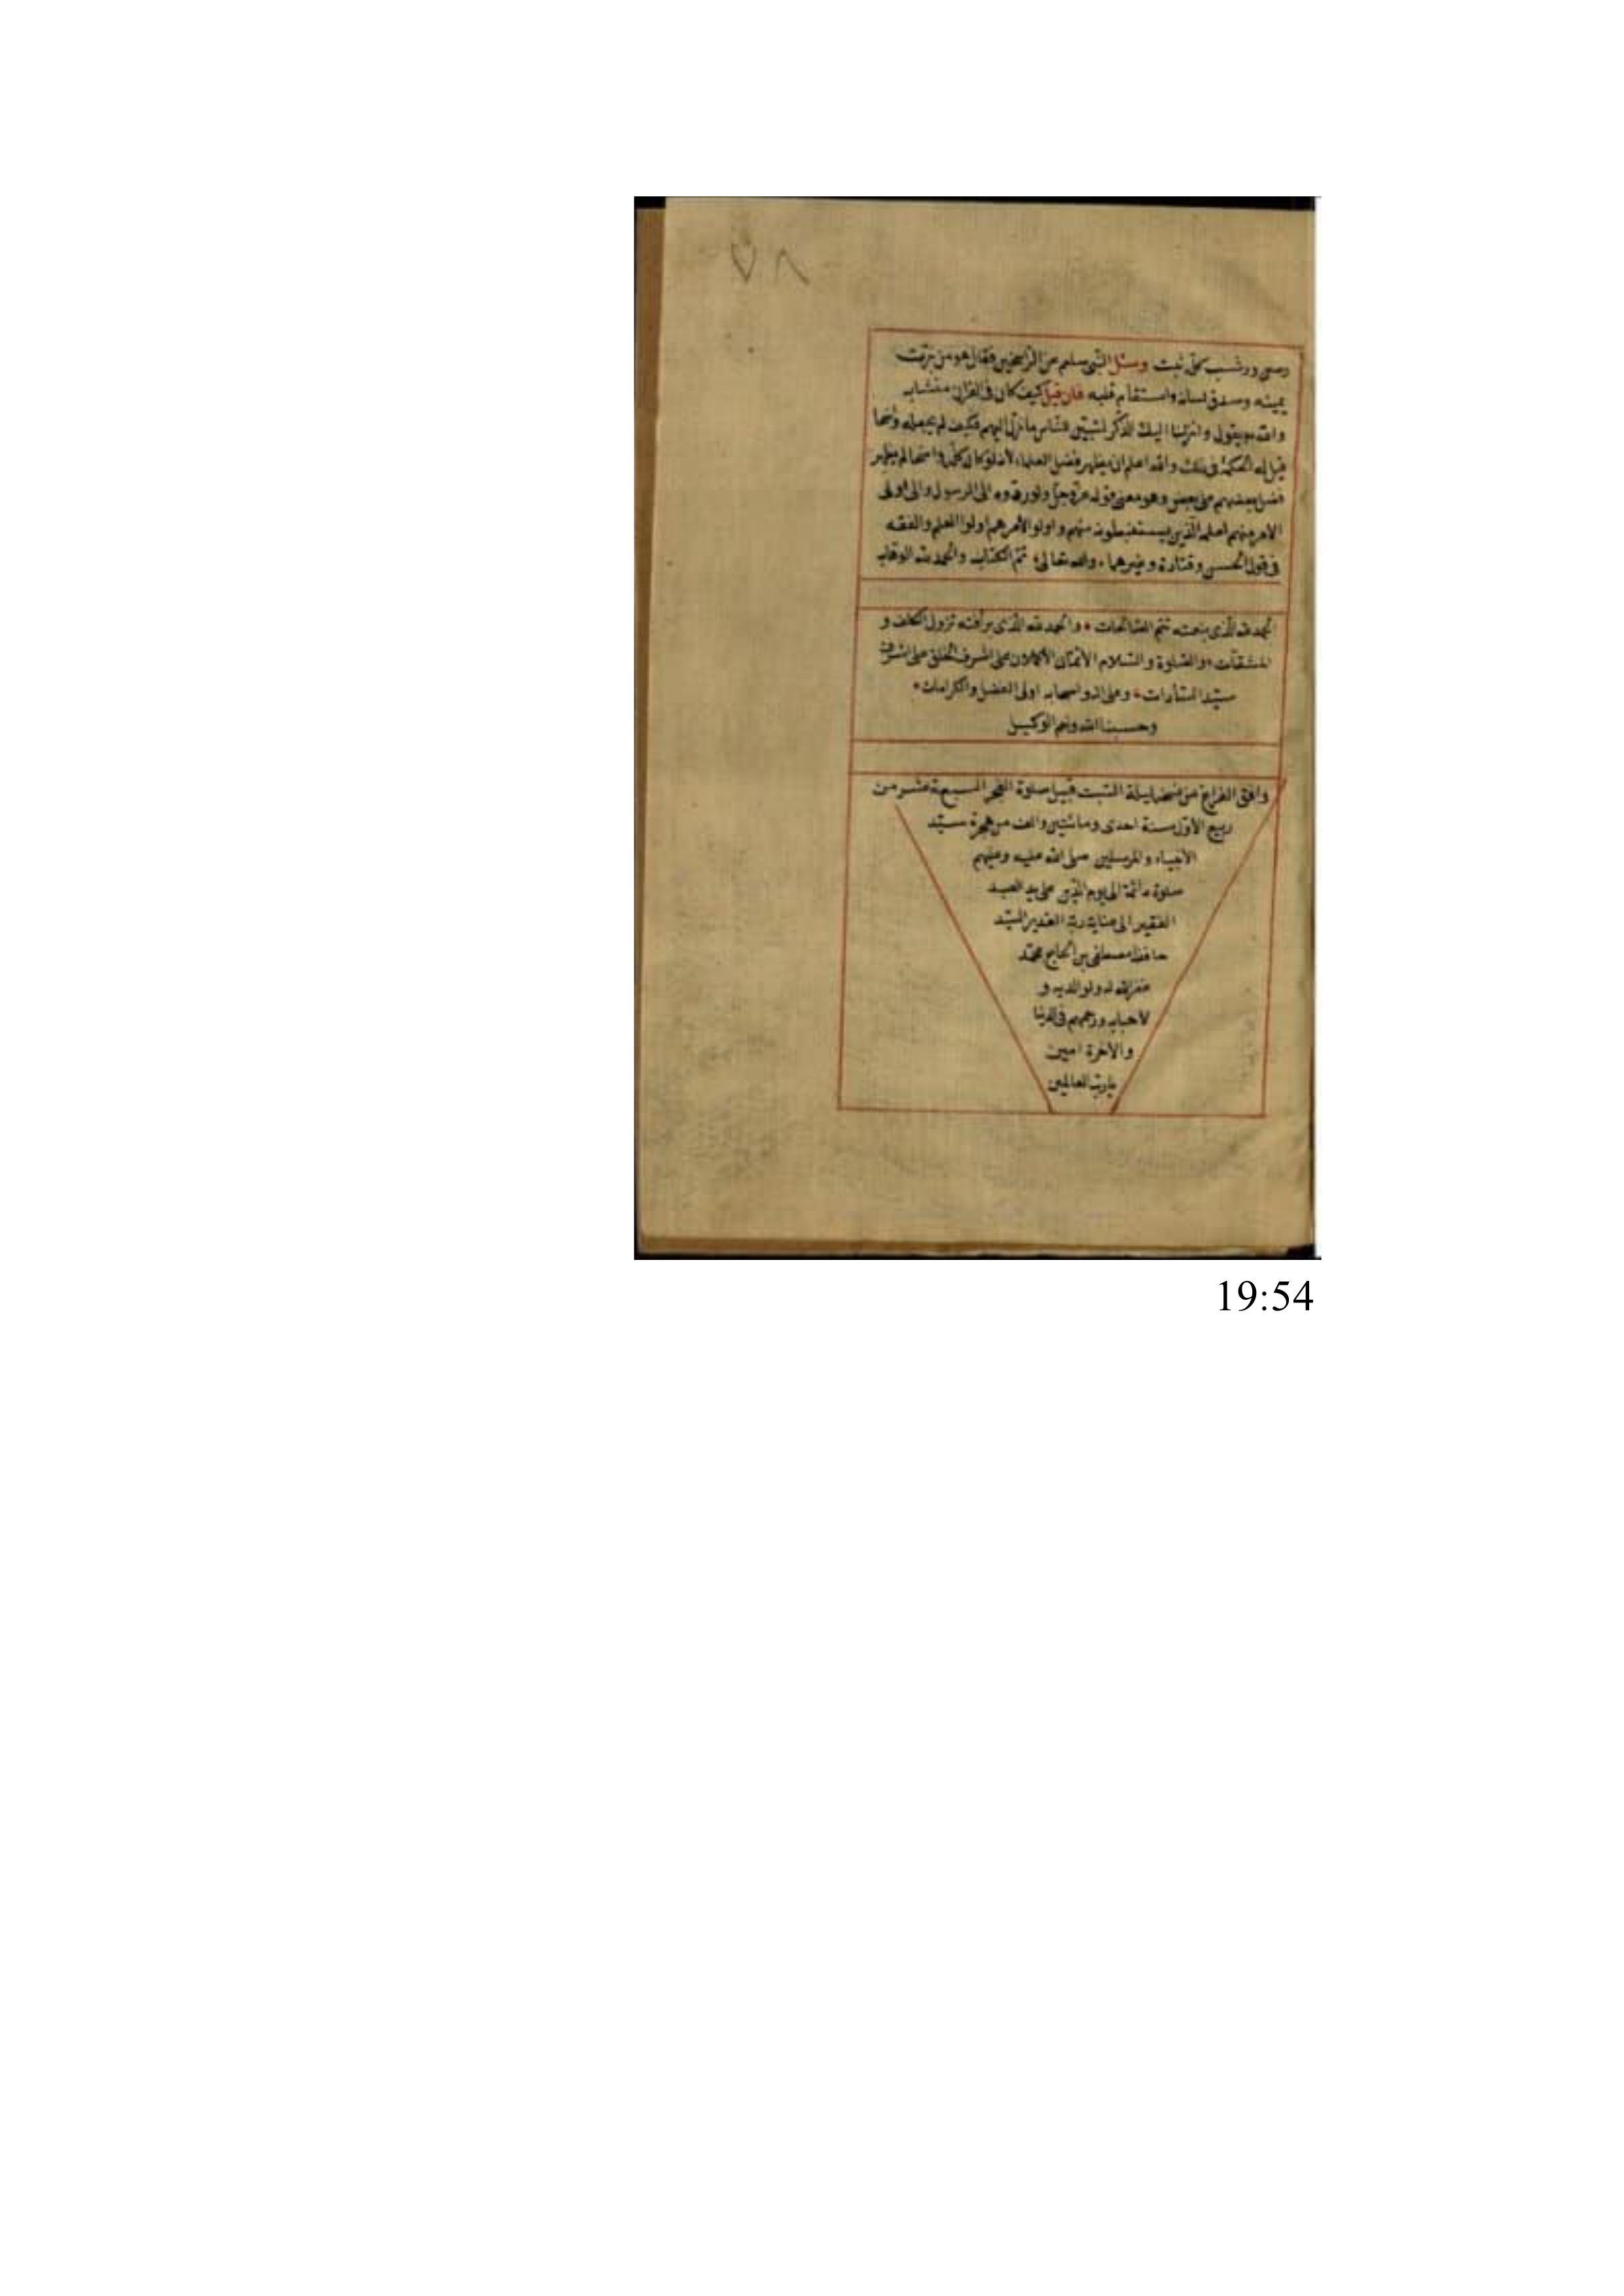 ٧٨
كل ثبت وسئل النبي سلم عن الراسخين فقال هو من برّت
يمينه وصدق لسانه واستقام قلبه فان قيل كيف كان في القرآن متشابه
والله يقول وانزلنا اليك الذكر لتبيّن للناس ما نزّل اليهم فكيف لم يجعله واضحا
قيل له الحكمة في ذلك والله اعلم ان يظهر فضل العلماء لانه لو كان كله واضحا لم يظهر
فضل بعضهم على بعض وهو معنى قوله عزّ وجلّ ولو ردّوه الى الرسول والى اولى
الامر منهم لعلمه الذين يستنبطونه منهم واولو الامر هم اولوا العلم والفقه
في قول الحسن وقتادة وغيرهما والله تعالى تمّ الكتاب والحمد لله الوهاب
الحمد لله الذي بنعمته تتم الصالحات • والحمد لله الذي برأفته تزول الكلف و
المشقات • والصلوة والسلام الأتمان الأكملان على اشرف الخلق على
سيّد السّادات • وعلى اله واصحابه اولى الفضل والكرامات •
وحسبنا الله ونعم الوكيل
وافق الفراغ من نسخه ليلة السبت قبيل صلوة الفجر السبعة عشر من
ربيع الاوّل سنة احدى ومائتين والف من هجرة سيّد
الأنبياء والمرسلين صلى الله عليه وعليهم
صلوة دائمة الى يوم الدين على يد العبد
الفقير الى عناية ربه القدير السيّد
حافظ مصطفى بن الحاج محمّد
غفر الله له ولوالديه و
لاحبابه ورحمهم في الدنيا
والآخرة امين
يا ربّ العالمين
19:54